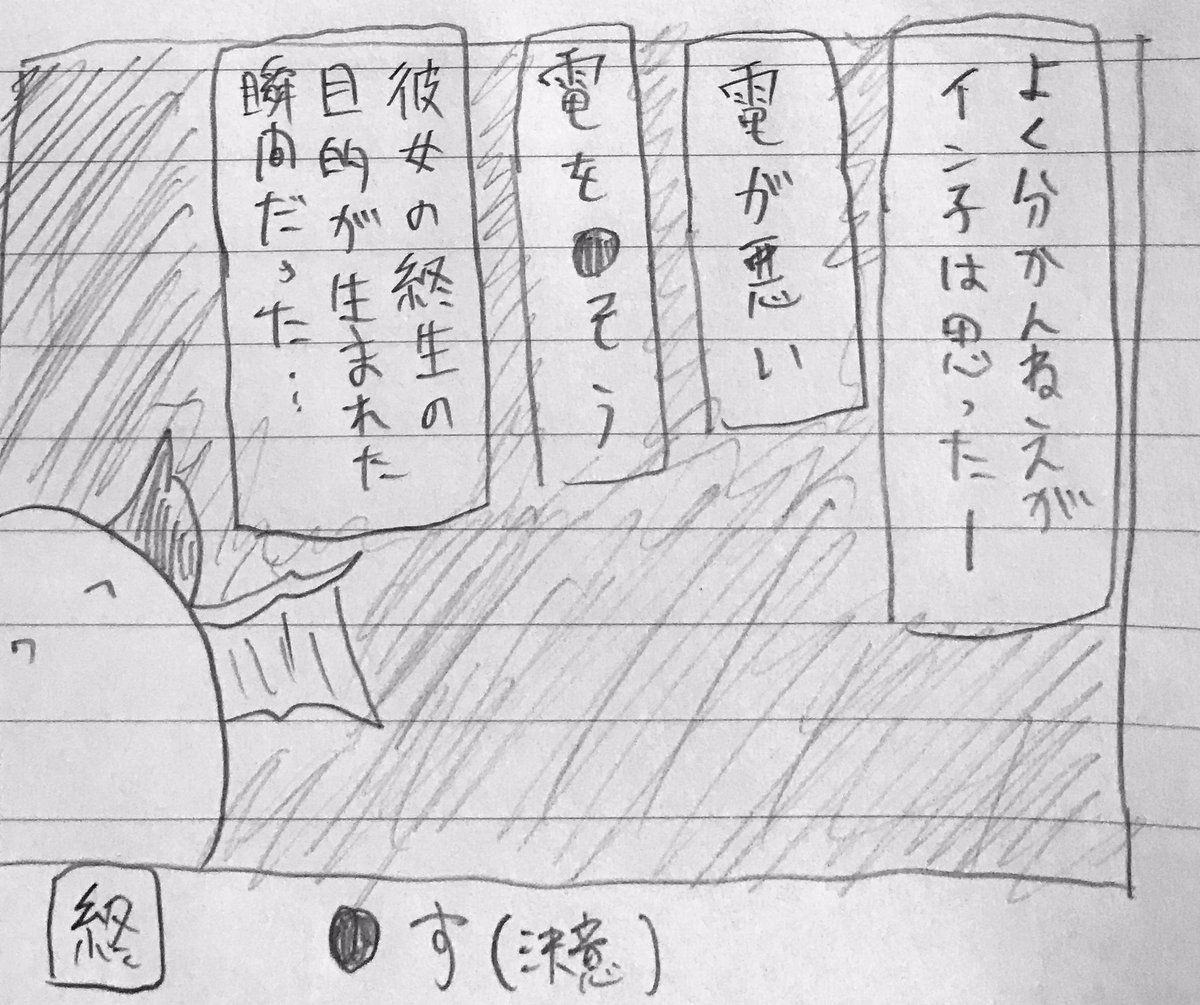 よく分かんねえが
イン子は思ったー
電が悪い
電を●そう
彼女の終生の
目的が生まれた
瞬間だった…
●す(決意)
終